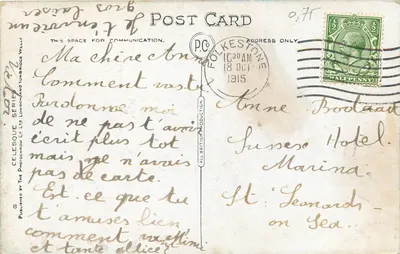 Je t'envoie un
gros baiser
Victor
POST CARD
THIS SPACE FOR COMMUNICATION.
ADDRESS ONLY.
0,75
Ma chère Anne
Comment vas tu
Pardonne moi
de ne pas t'avoir
écrit plus tot
mais je n'avais
pas de carte.
Est. ce que tu
t'amuses bien
comment va Mimi
et tante Alice?
FOLKESTONE
10 AM
18 OCT
1915
HALFPENNY
Anne
Sussex Hotel.
Marina
St Leonards
on Sea.
CELESQUE SERIES
PUBLISHED BY THE PHOTOCHROM CO. LTD. LONDON AND TUNBRIDGE WELLS.
ALL BRITISH PRODUCTION